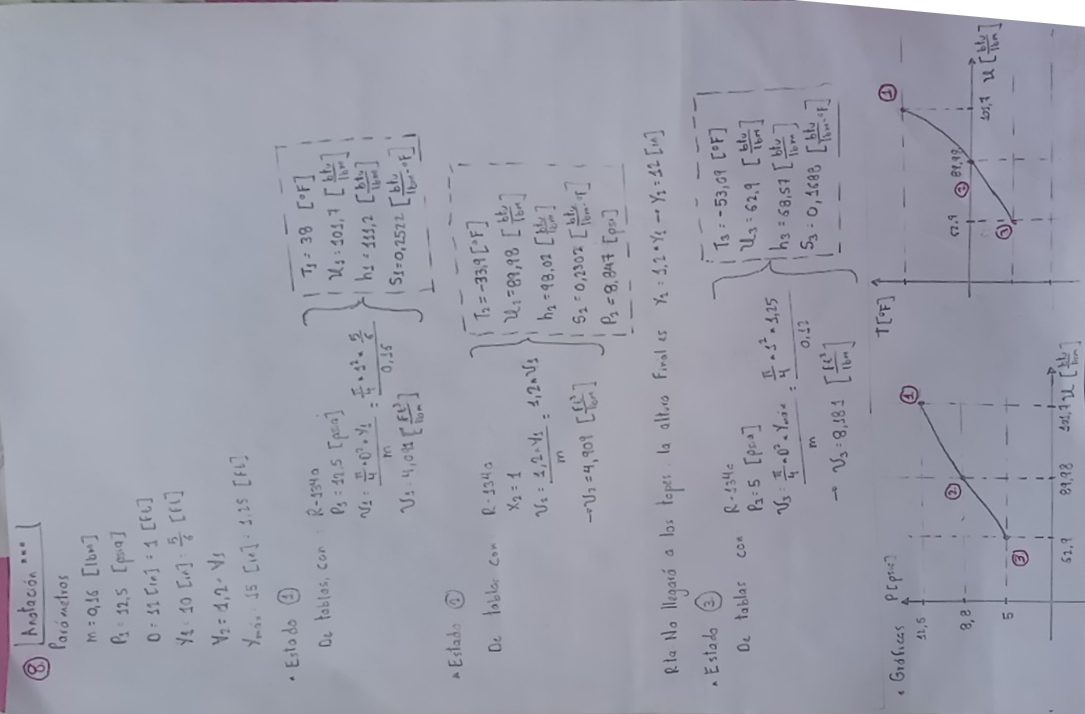 ⑧ Anotación ***
Parámetros
m = 0,16 [lbm]
P1 = 12,5 [psia]
D = 12 [in] = 1 [Ft]
Y1 = 10 [in] = 5/6 [Ft]
Y2 = 1,2 * Y1
Ymáx = 15 [in] = 1,25 [Ft]
• Estado ①
De tablas, con
R-134a
P1 = 12,5 [psia]
V1 = π/4 * D² * Y1 / m = π/4 * 1² * 5/6 / 0,16
V1 = 4,091 [Ft³/lbm]
T1 = 38 [°F]
U1 = 101,7 [btu/lbm]
h1 = 111,2 [btu/lbm]
S1 = 0,2522 [btu/lbm-°F]
• Estado ②
De tablas con
R-134a
X2 = 1
V2 = 1,2 * Y1 / m = 1,2 * V1
→ V2 = 4,909 [Ft³/lbm]
T2 = -33,9 [°F]
U2 = 89,98 [btu/lbm]
h2 = 98,02 [btu/lbm]
S2 = 0,2302 [btu/lbm-°F]
P2 = 8,847 [psi]
Rta No llegará a los topes. la altura Final es Y2 = 1,2 * Y1 → Y2 = 12 [in]
• Estado ③
De tablas con
R-134a
P3 = 5 [psia]
V3 = π/4 * D² * Ymáx / m = π/4 * 1² * 1,25 / 0,12
→ V3 = 8,181 [Ft³/lbm]
T3 = -53,09 [°F]
U3 = 62,9 [btu/lbm]
h3 = 68,57 [btu/lbm]
S3 = 0,1688 [btu/lbm-°F]
• Gráficas
P [psia]
12,5
8,8
5
①
②
③
62,9
89,98
101,7
U [btu/lbm]
T [°F]
①
②
③
62,9
89,98
101,7
U [btu/lbm]